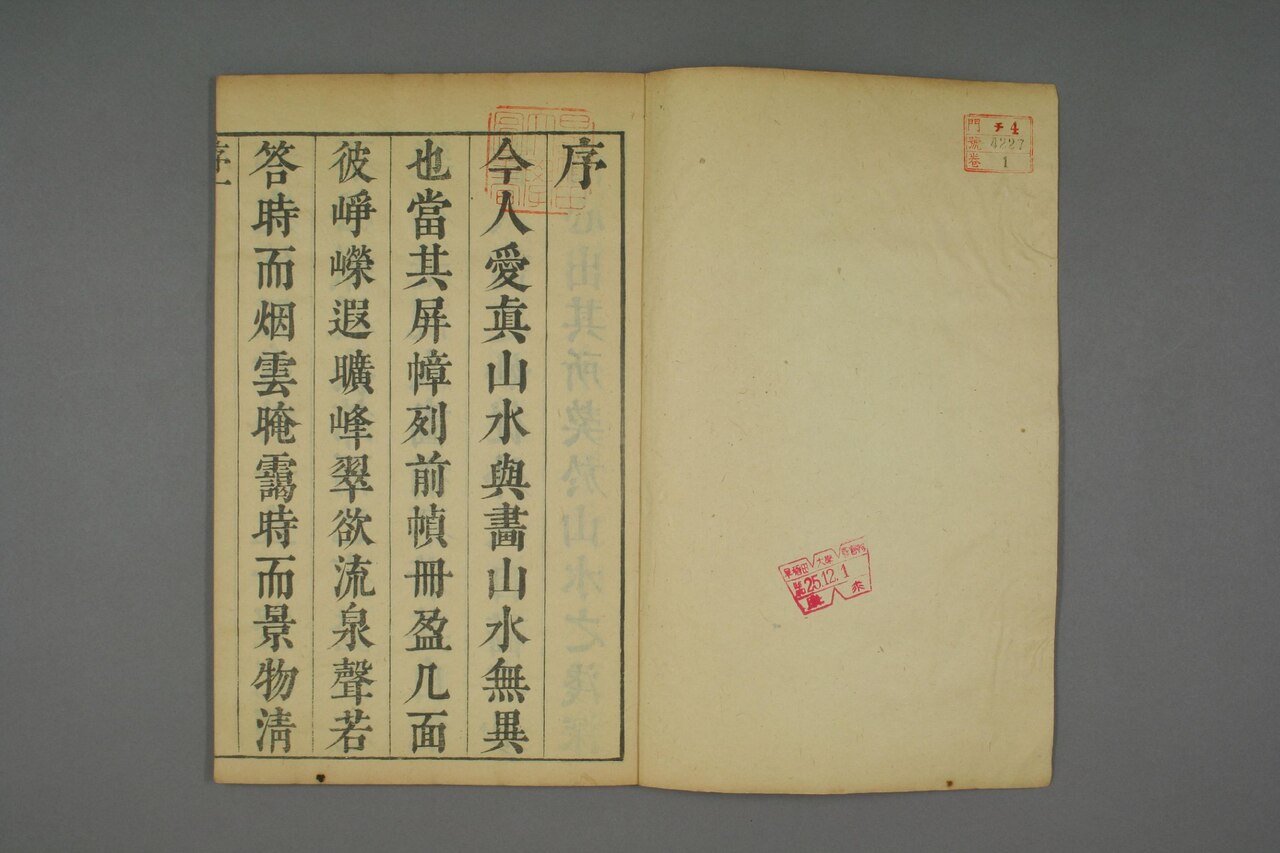 門 チ4
號 4227
卷 1
早稻田大學
25.12.1
來
序
今人愛眞山水與畵山水無異
也當其屏幛列前幀冊盈几面
彼崢嶸遐曠峰翠欲流泉聲若
答時而烟雲晻靄時而景物淸
序一